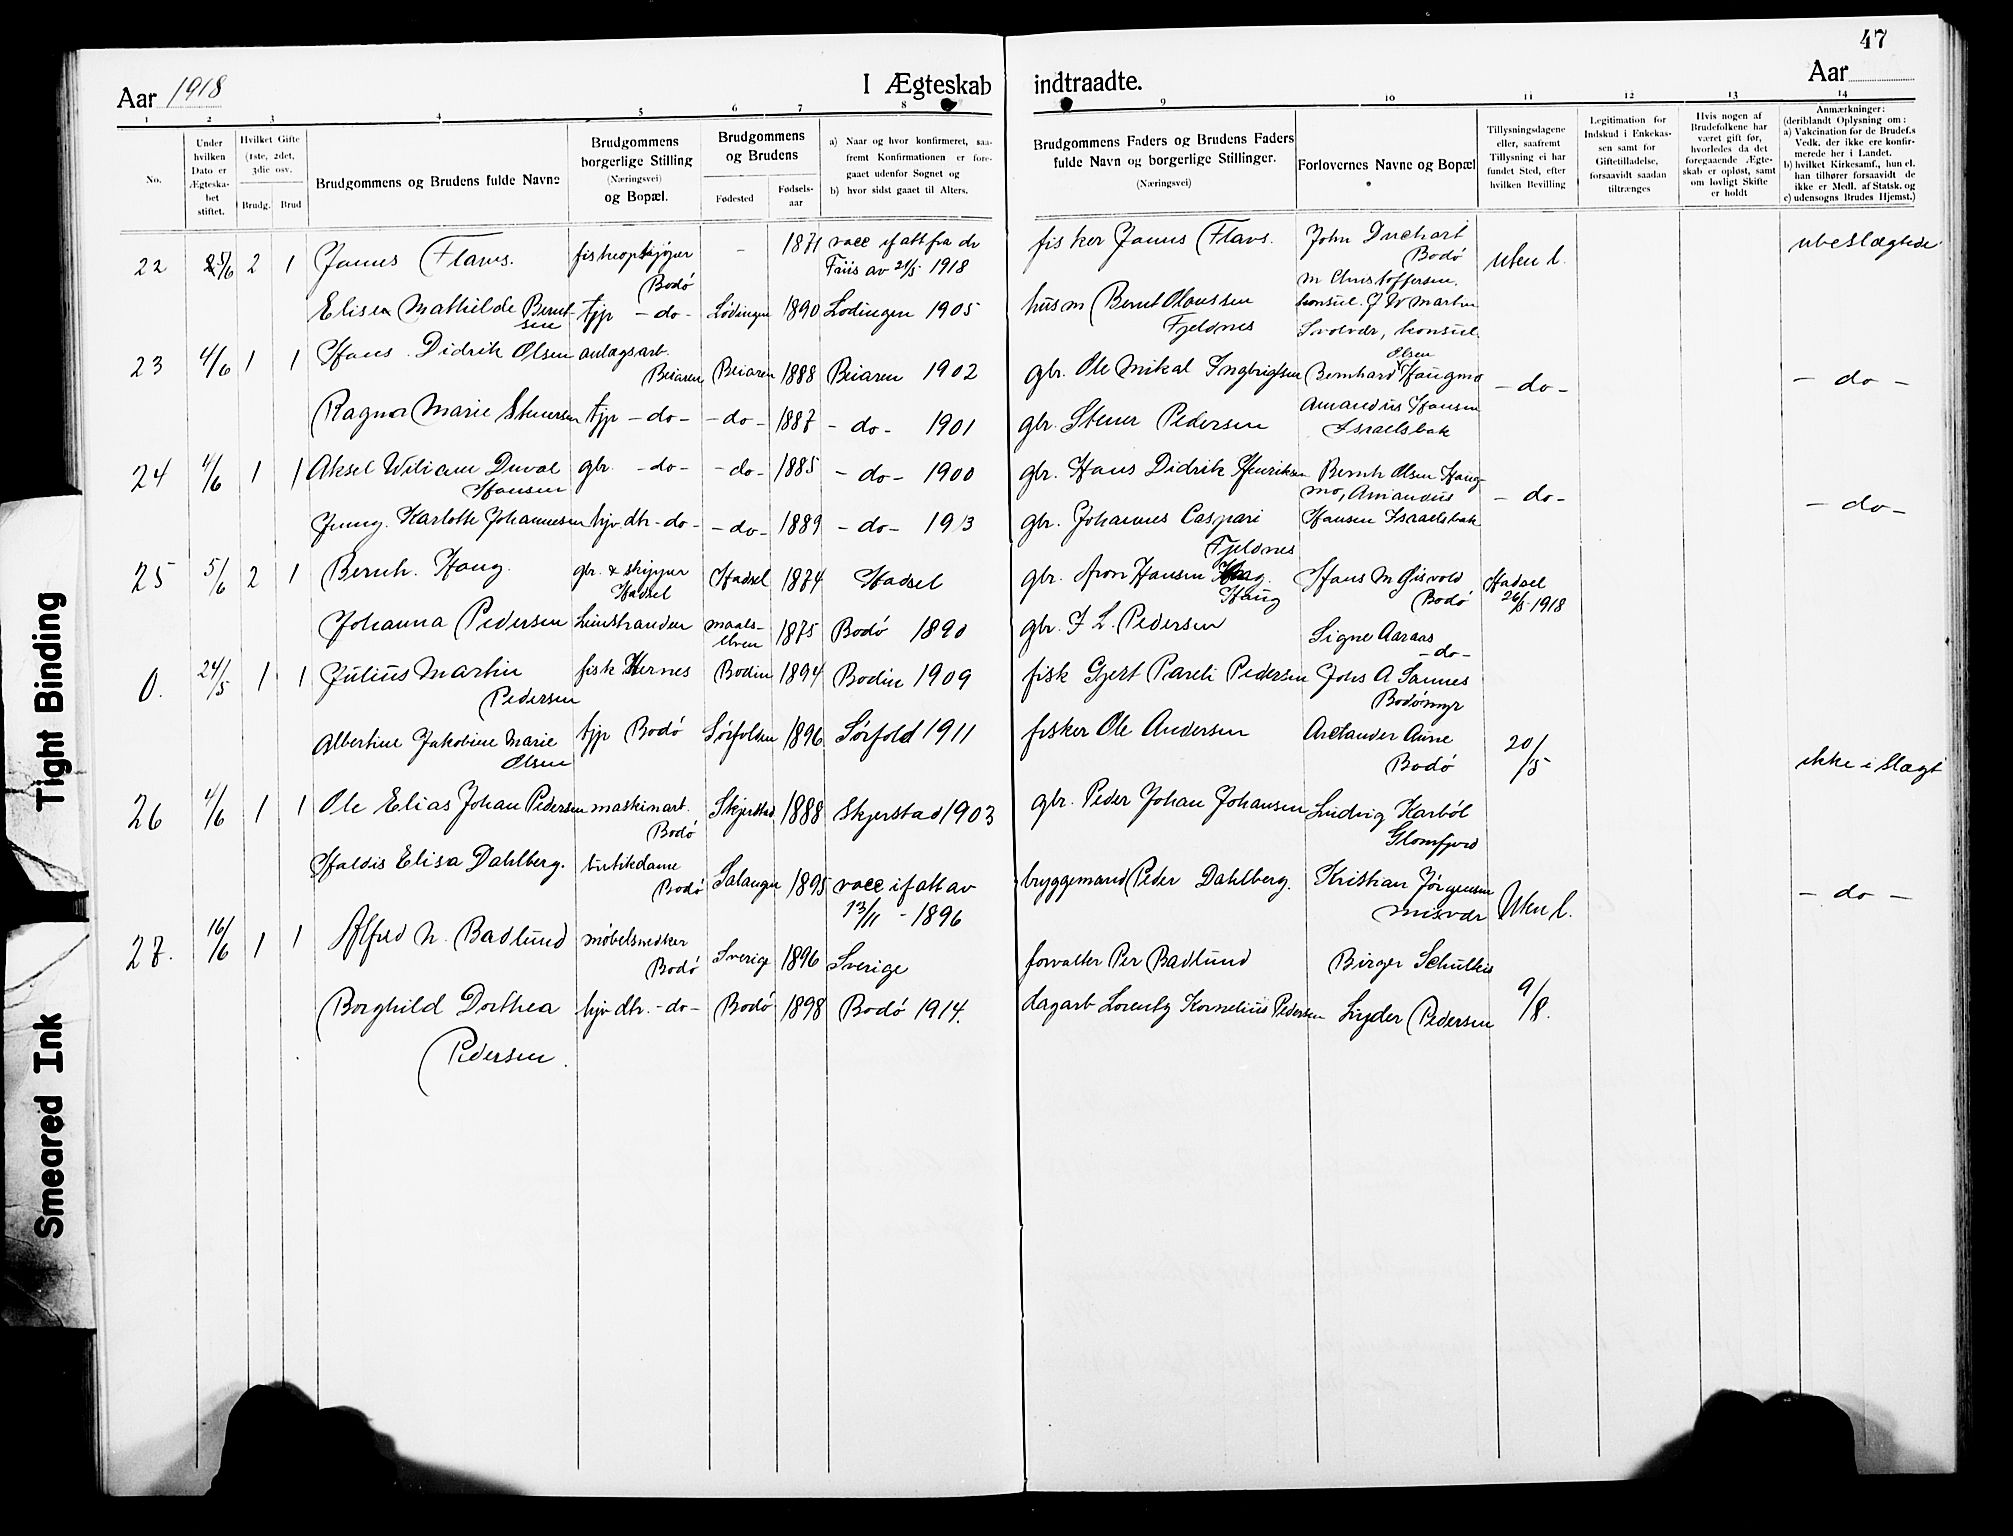 47
Aar 1918
I Ægteskab indtraadte.
Aar
1 2 3 4 5 6 7 8 9 10 11 12 13 14
No.
Under hvilken Dato er Ægteskabet stiftet.
Hvilket Gifte (1ste, 2det, 3die osv.
Brudg. Brud
Brudgommens og Brudens fulde Navne
Brudgommens borgerlige Stilling (Næringsvei) og Bopæl.
Brudgommens og Brudens
Fødested
Fødselsaar
a) Naar og hvor konfirmeret, saafremt Konfirmationen er foregaaet udenfor Sognet og
b) hvor sidst gaaet til Alters.
Brudgommens Faders og Brudens Faders fulde Navn og borgerlige Stillinger.
(Næringsvei)
Forlovernes Navne og Bopæl
Tillysningsdagene eller, saafremt Tillysning ei har fundet Sted, efter hvilken Bevilling
Legitimation for Indskud i Enkekassen samt for Giftetilladelse, forsaavidt saadan tiltrænges
Hvis nogen af Brudefolkene har været gift før, hvorledes da det foregaaende Ægteskab er opløst, samt om lovligt Skifte er holdt
Anmærkninger: (deriblandt Oplysning om:
a) Vakcination for de Brudef.s Vedk. der ikke ere konfirmerede her i Landet.
b) hvilket Kirkesamf., hun el. han tilhører forsaavidt de ikke er Medl. af Statsk. og
c) udensogns Brudes Hjemst.)
22 2 1 James Flaws. fiskeopkjøper Bodø - 1871 vacc if att fra dr Friis av 21/5 1918 fisker James Flaws. John Duchart Bodø uten l. ubeslægtede
M Christoffersen.
Elisea Mathilde Berntsen tjp -do- Lødingen 1890 Lødingen 1905 husm Bernt Olaussen Fjeldnes konsul. J W Martin Svolvær, konsul
23 4/6 1 1 Hans Didrik Olsen anlægsart. Beiaren Beiaren 1888 Beiaren 1902 gbr. Ole Mikal Ingbrigtsen Bernhard Olsen Haugmo - do - - do -
Ragna Marie Stenersen tjp -do- -do- 1887 -do- 1901 gbr. Stener Pedersen Amandus Hansen Israelsbak
24 4/6 1 1 Aksel Wiliam Duval Hansen gbr. -do- -do- 1885 -do- 1900 gbr. Hans Didrik Henriksen Bernh Olsen Haugmo, Amandus - do - - do -
Jenny. Karlotte Johannesen hjv. dtr -do- -do- 1889 -do- 1913 gbr. Johannes Caspari Fjeldnes Hansen Israelsbak
25 5/6 2 1 Bernh. Haug. gbr. & skipper Hadsel Hadsel 1874 Hadsel gbr. Aron Hansen Haug Hans M Gisvold Bodø Hadsel 26/5 1918
Johanna Pedersen Leinstranden Maalselven 1875 Bodø 1890 gbr. I L. Pedersen Signe Aaraas -do-
0. 24/5 1 1 Julius Martin Pedersen fisk Hernes Bodin 1894 Bodin 1909 fisk Gjert Pareli Pedersen Johs A Sannes Bodømyr
Albertine Jakobine Marie Olsen tjp Bodø Sørfolden 1896 Sørfold 1911 fisker Ole Andersen Arelander Aune Bodø 20/5 ikke i slægt
26 4/6 1 1 Ole Elias Johan Pedersen maskinart. Bodø Skjerstad 1888 Skjerstad 1903 gbr. Peder Johan Johansen Ludvig Karbøl Glomfjord
Haldis Elisa Dahlberg. butikdame Bodø Salangen 1895 vacc if att av 13/11 - 1896 bryggemand Peder Dahlberg. Kristian Jørgensen Misvær Uten l. - do -
27. 16/6 1 1 Alfred N. Badlund møbelsnedker Bodø Sverige 1896 Sverige forvalter Per Badlund Birger Schultz
Borghild Dorthea Pedersen. hjv dtr. -do- Bodø 1898 Bodø 1914. dagarb Lorentz Kornelius Pedersen Lyder Pedersen 9/8.
Tight Binding
Smeared Ink